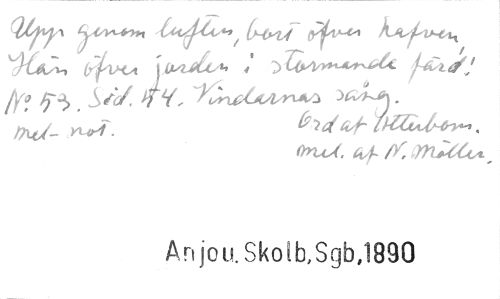 Upp genom luften, bort öfver hafven,
Hän öfver jorden i stormande färd!
No 53. Sid. 54. Vindarnas sång.
mel-not. Ord af Atterbom.
mel. af N. Möller.
Anjou. Skolb, Sgb, 1890